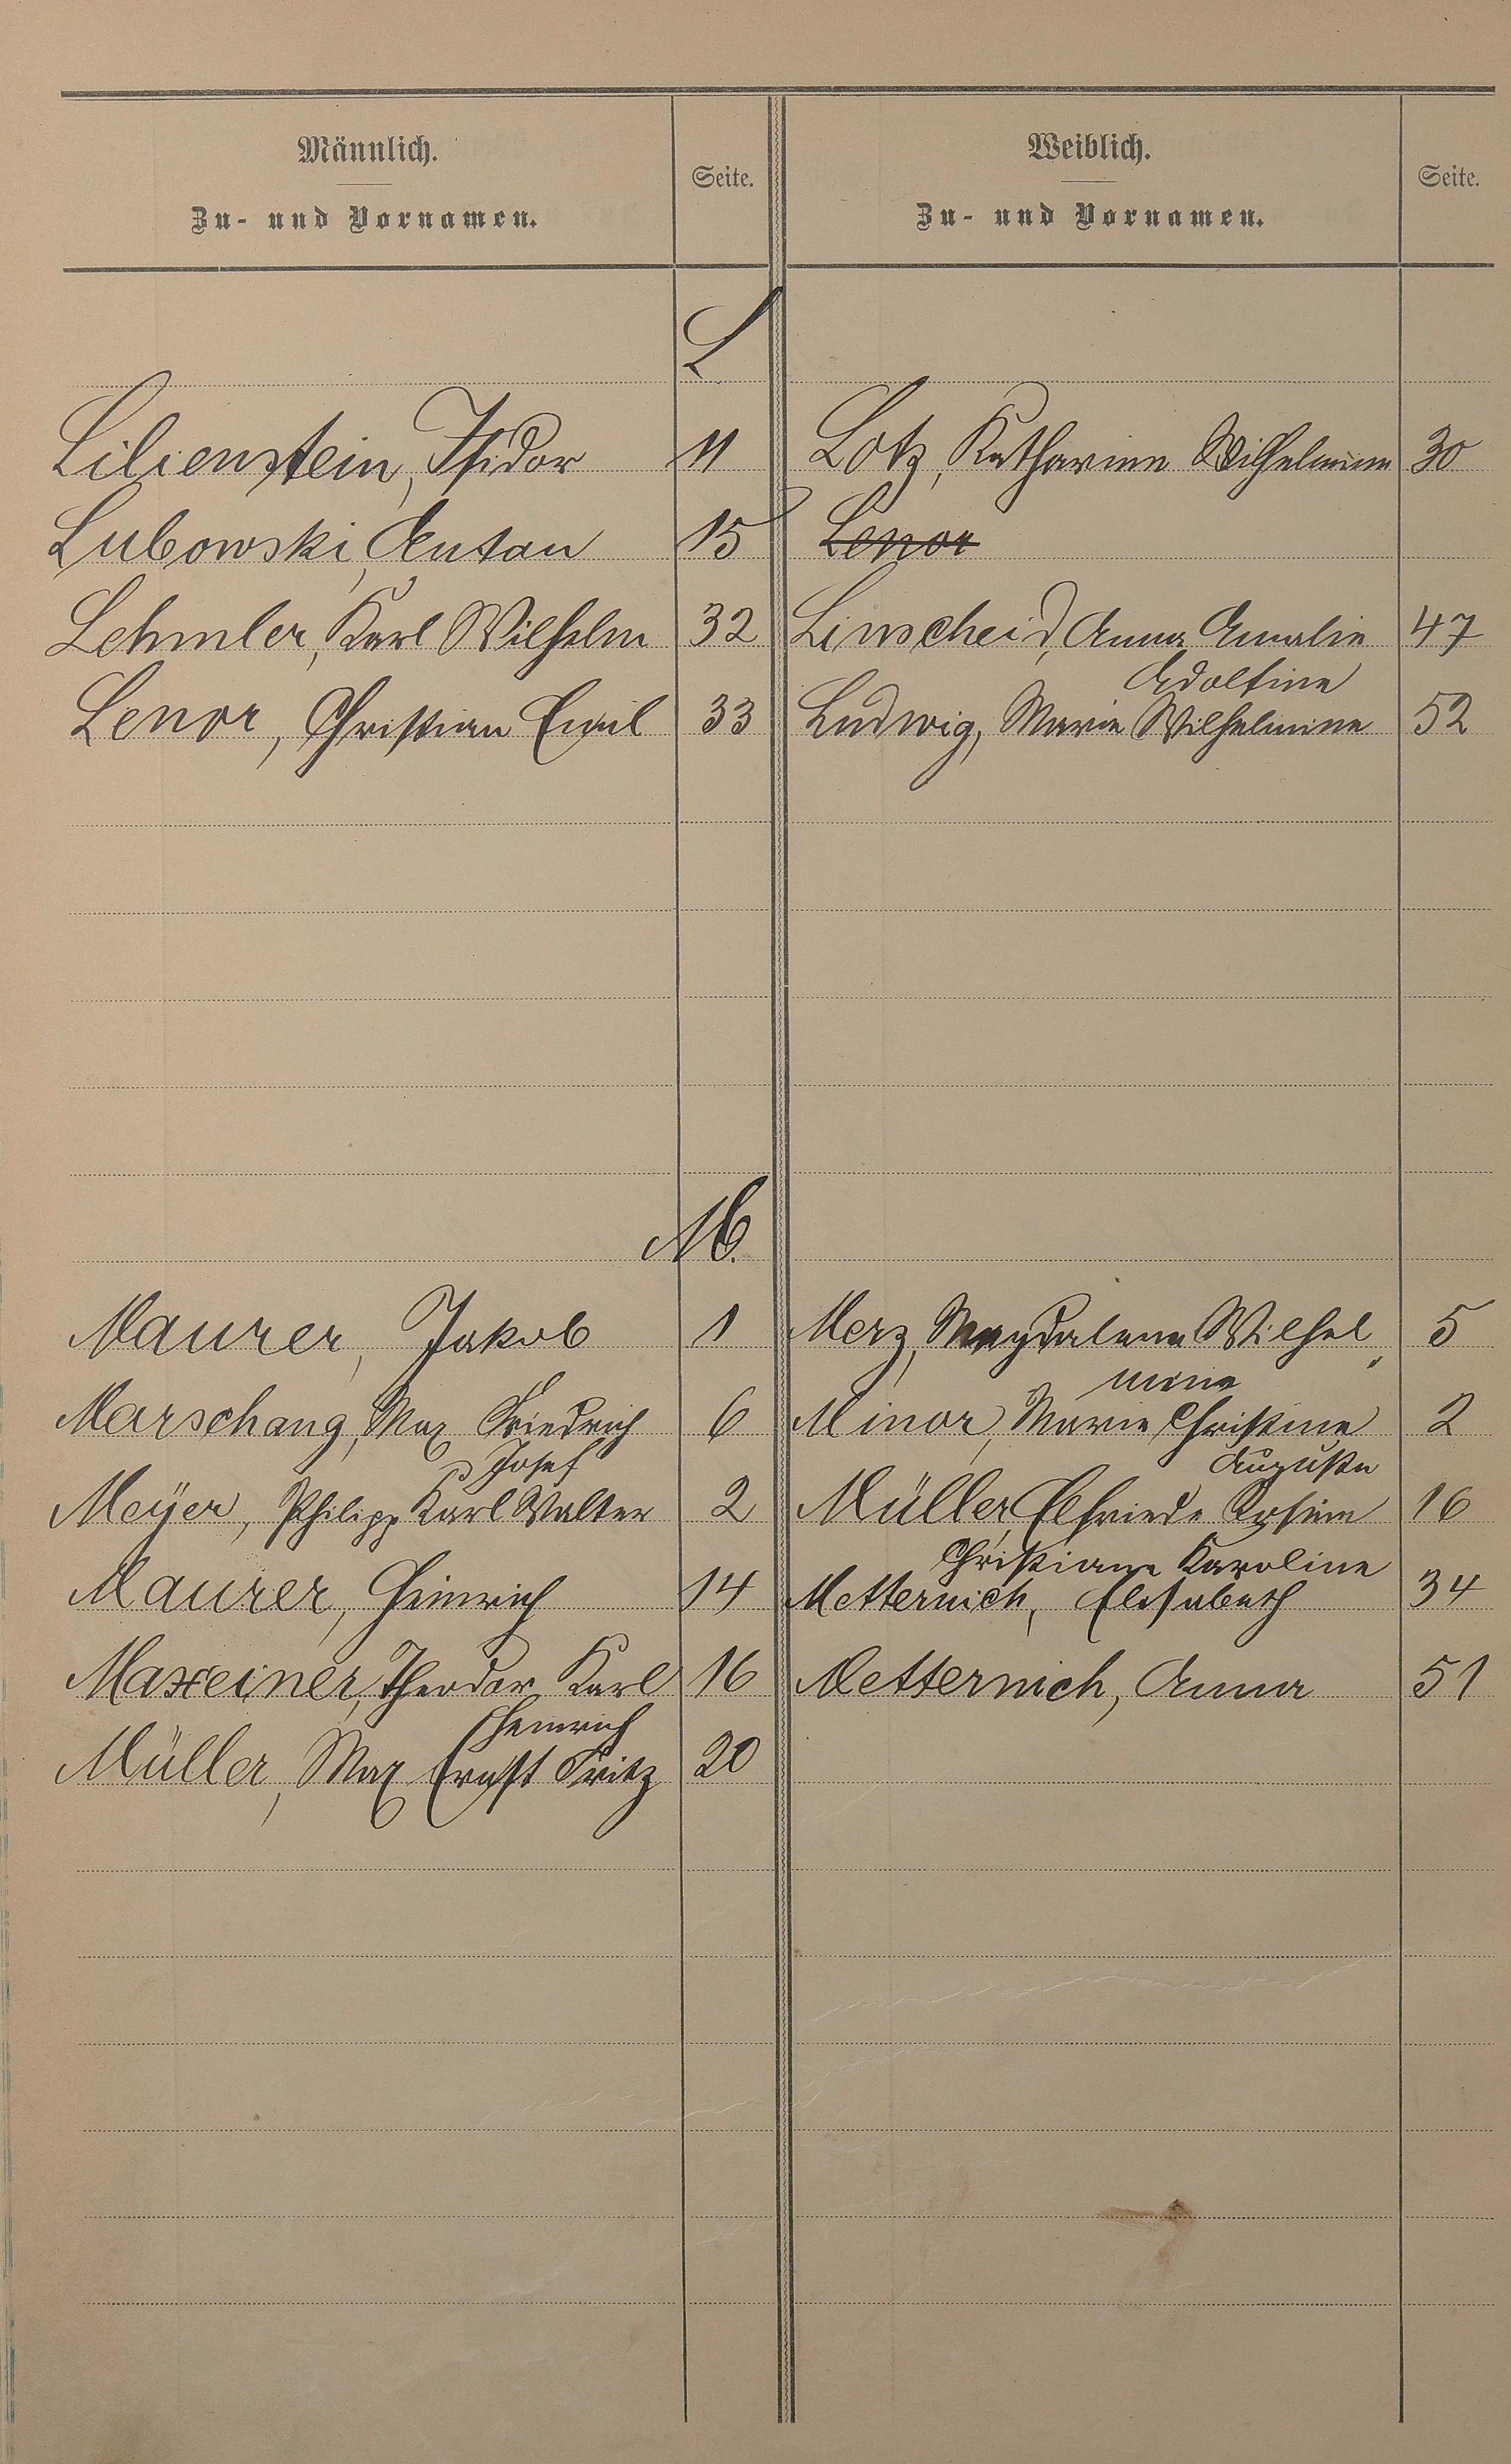 Männlich.
Zu- und Vornamen.
Seite.
Weiblich.
Zu- und Vornamen.
Seite.
L
Lilienstein, Isidor 11
Lotz, Katharine Wilhelmine 30
Lubowski, Anton 15
Lenor
Lehmler, Karl Wilhelm 32
Linscheid, Anna Amalie 47
Adolfine
Lenor, Christian Emil 33
Ludwig, Marie Wilhelmine 52
M.
Maurer, Jakob 1
Merz, Magdalena Wilhel„ 5
mine
Marschang, Max Friedrich 6
Minor, Marie Christine 2
Josef
Auguste
Meÿer, Philipp Karl Walter 2
Müller, Elfriede Rosine 16
Christiane Karoline
Maurer, Heinrich 14
Metternich, Elisabeth 34
Maxeiner, Theodor Karl 16
Metternich, Anna 51
Heinrich
Müller, Max Ernst Fritz 20